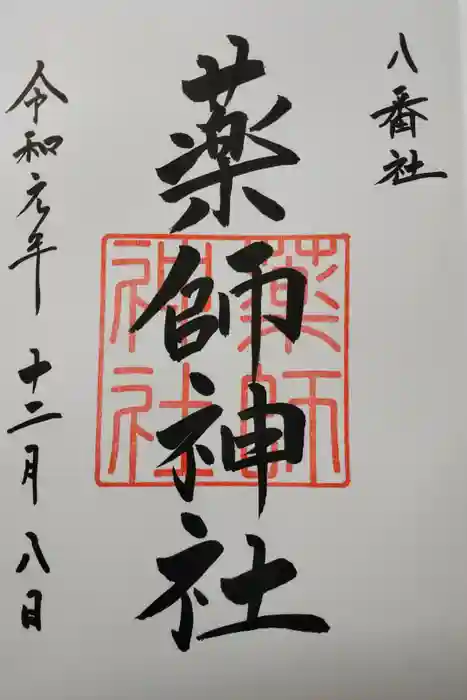 八番社
薬師神社
薬師
神社
令和元年 十二月 八日